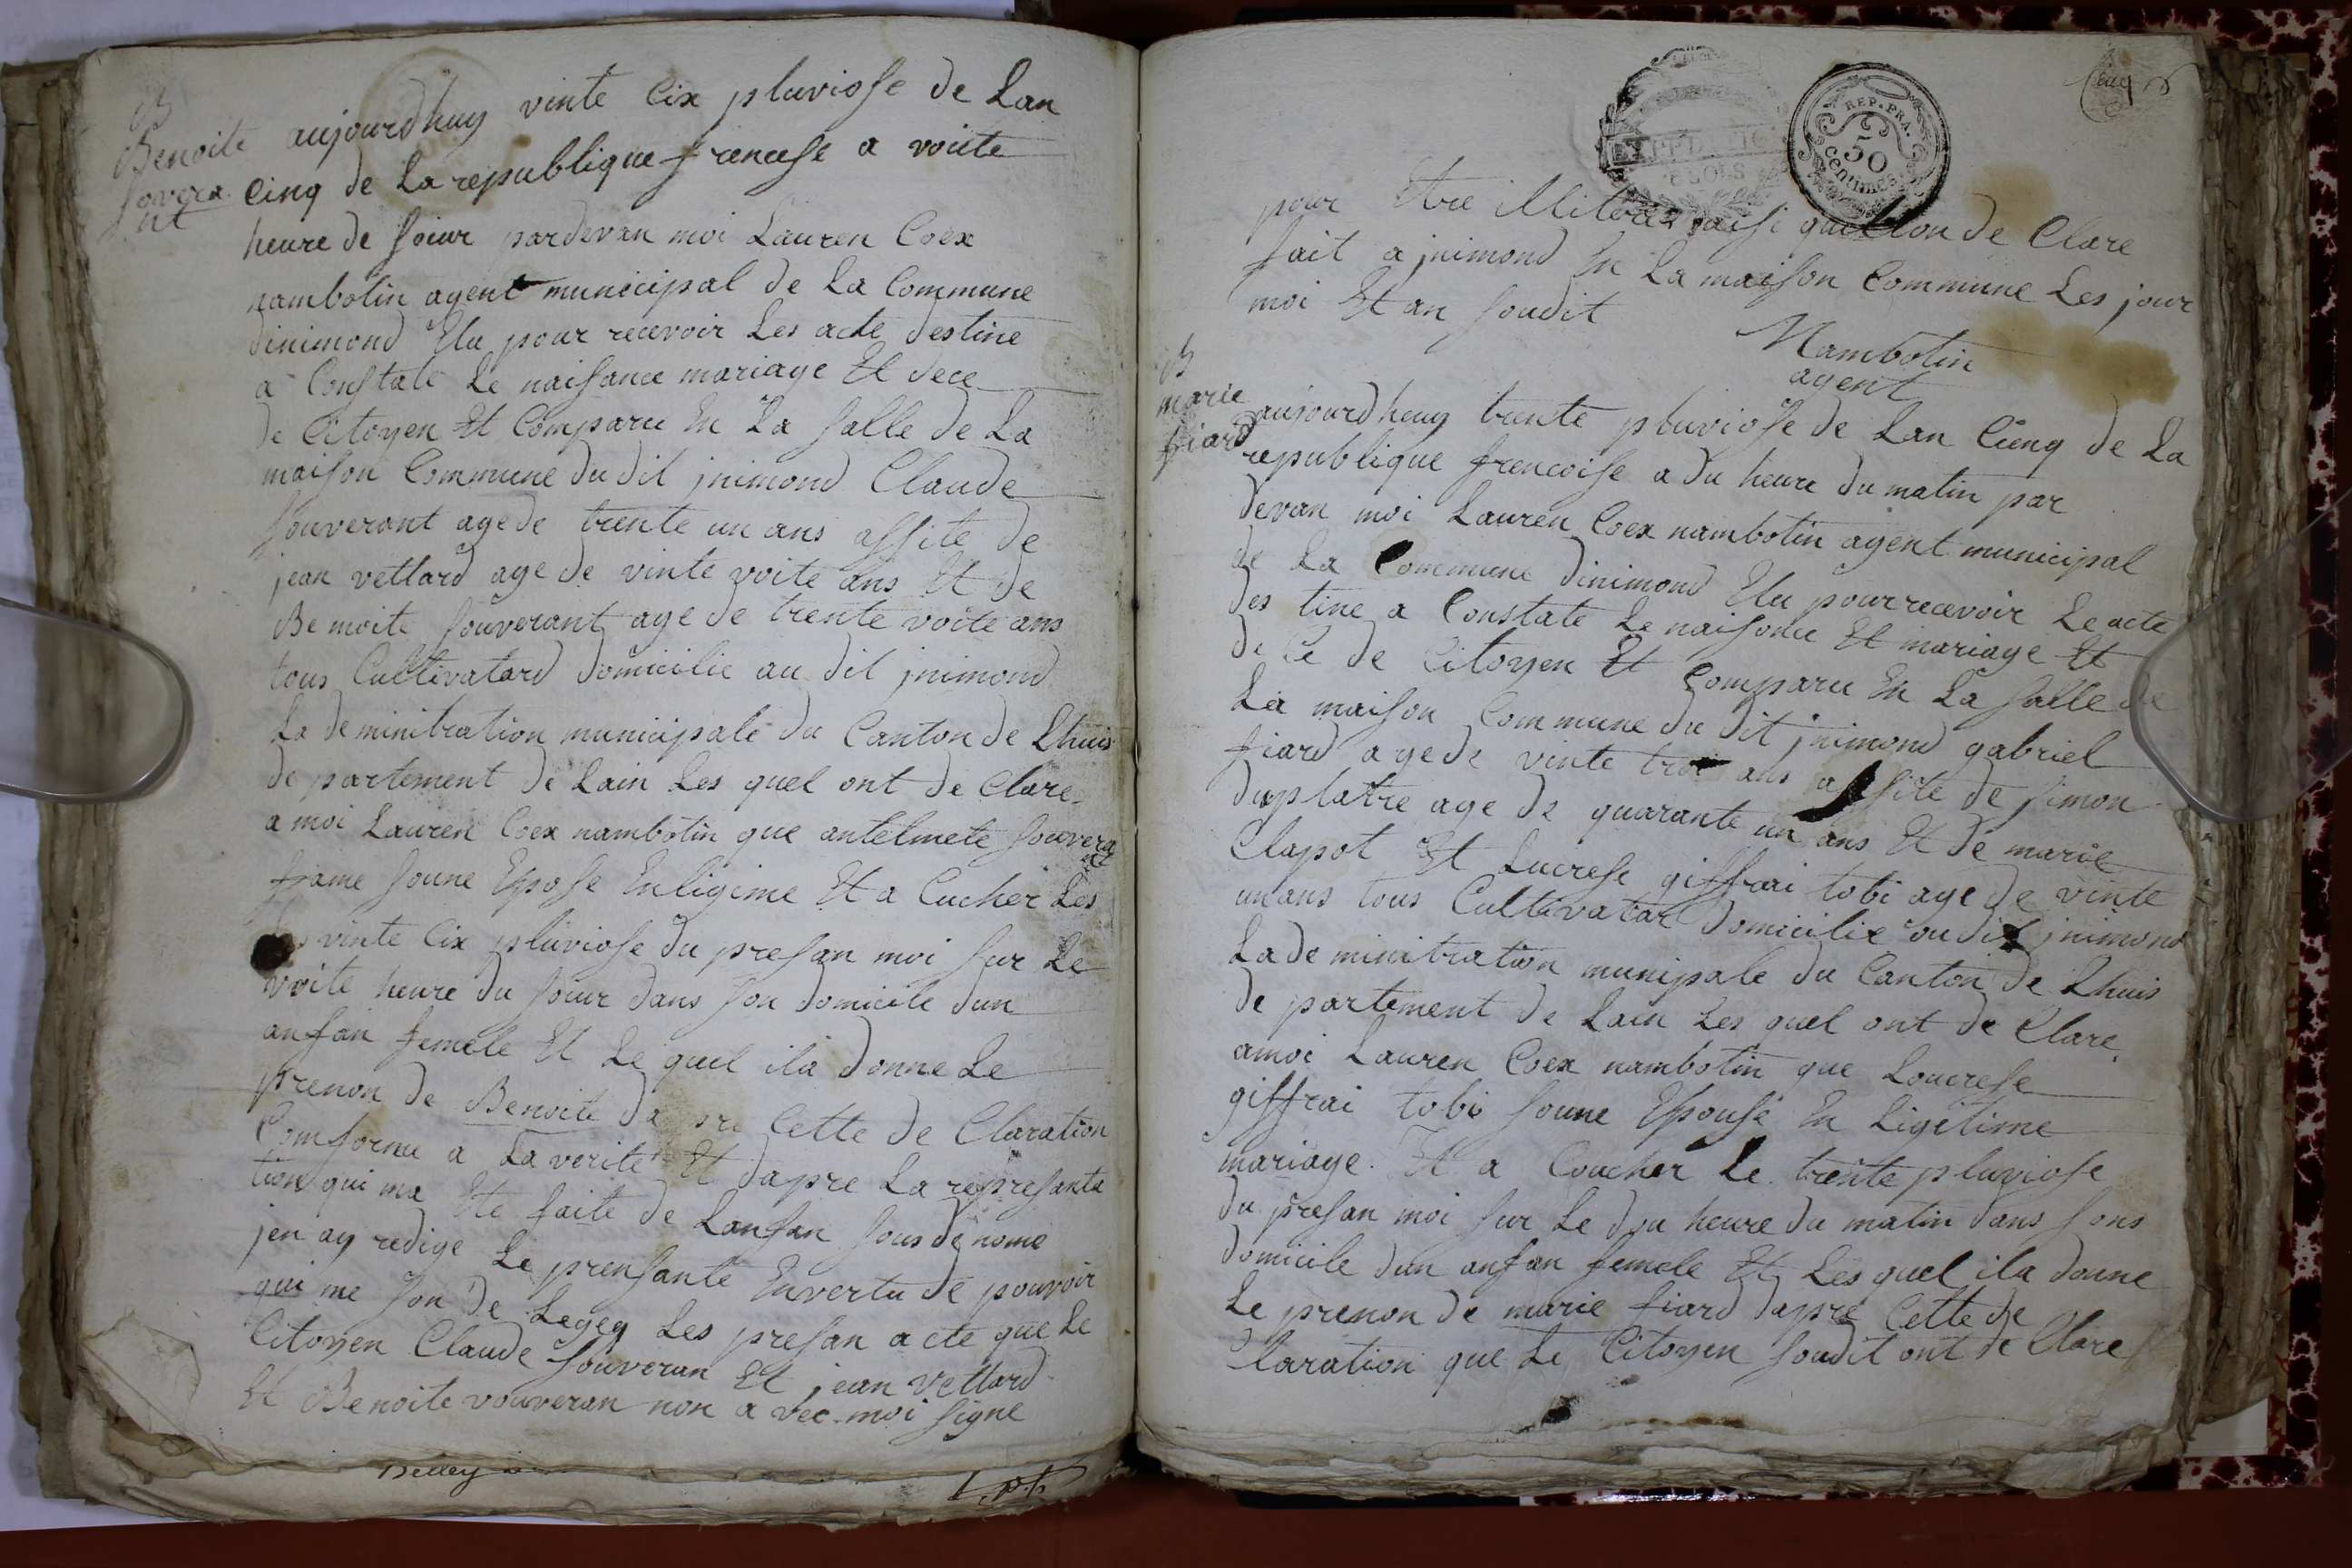 B
Benoite
sovera
nt
aujourdhuy vinte Cix pluviosse de Lan
Cinq de La republique francese a voite
heure de soiur pardevan moi Lauren Coex
nambotin agent municipal de La Commune
dinimond Elu pour recevoir Les acte destine
a Constate Le naisance mariage Et dece
de Citoyen Et Comparu En La salle de La
maison Commune du dit jnimond Claude
souverant age de trente un ans assite de
jean vettard age de vinte voite ans Et de
Be moite souverant age de trente voite ans
tous Cultivatard domicilie au dit jnimond
La deminitration municipale du Canton de Lhuis
de partement de Lain Les quel ont de Clare
a moi Lauren Coex nambotin que antelmete souvera
nt
fame soune Epose En ligime Et a Cucher Les
vinte Cix pluviose du presan moi sur Le
voite heure du soiur dans son domicile dun
anfan femele Et Le quel ila donne Le
prenon de Benoite da pre Cette de Claration
Comforme a La verite Et dapre La represanta
tion qui ma Ete faite de Lanfan sous de nome
jen ay redige Le prensante En vertu de pouvoir
qui me son de Legeg Les presan acte que Le
Citoyen Claude souveran Et jean vettard
Et Benoite vouveran non a vec moi signe
REP. FRA.
50
centimes
pour Etre jllitere aisi quelon de Clare
fait a jnimond En La maison Commune Les jour
moi Et an soudit
Nambotin
agent
B
marie
fiard
aujourdhuy trente pluviose de Lan Cienq de La
republique francoise a du heure du matin par
devan moi Lauren Coex nambotin agent municipal
de La Commune dinimond Elu pour recevoir Le acte
des tine a Constate Le naisance Et mariage Et
de Ce de Citoyen Et Comparu En La salle de
La maison Commune du dit jnimond gabriel
fiard age de vinte troi ans assite de simon
duplatre age de quarante un ans Et de marie
Clapot Et Lucrese giffrai tobi age de vinte
un ans tous Cultivatar domicilie ou dit jnimond
La de minitration munipale du Canton de Lhuis
de partement de Lain Les quel ont de Clare
amoi Lauren Coex nambotin que Loucrese
giffrai tobi soune Epouse En Ligetime
mariage. Et a Coucher Le trente pluviose
du presan moi sur Le dou heure du matin dans sons
domicile dun anfan femele Et Les quel ila donne
Le prenon de marie fiard dapre Cette de
Claration que Le Citoyen soudit ont de Clare